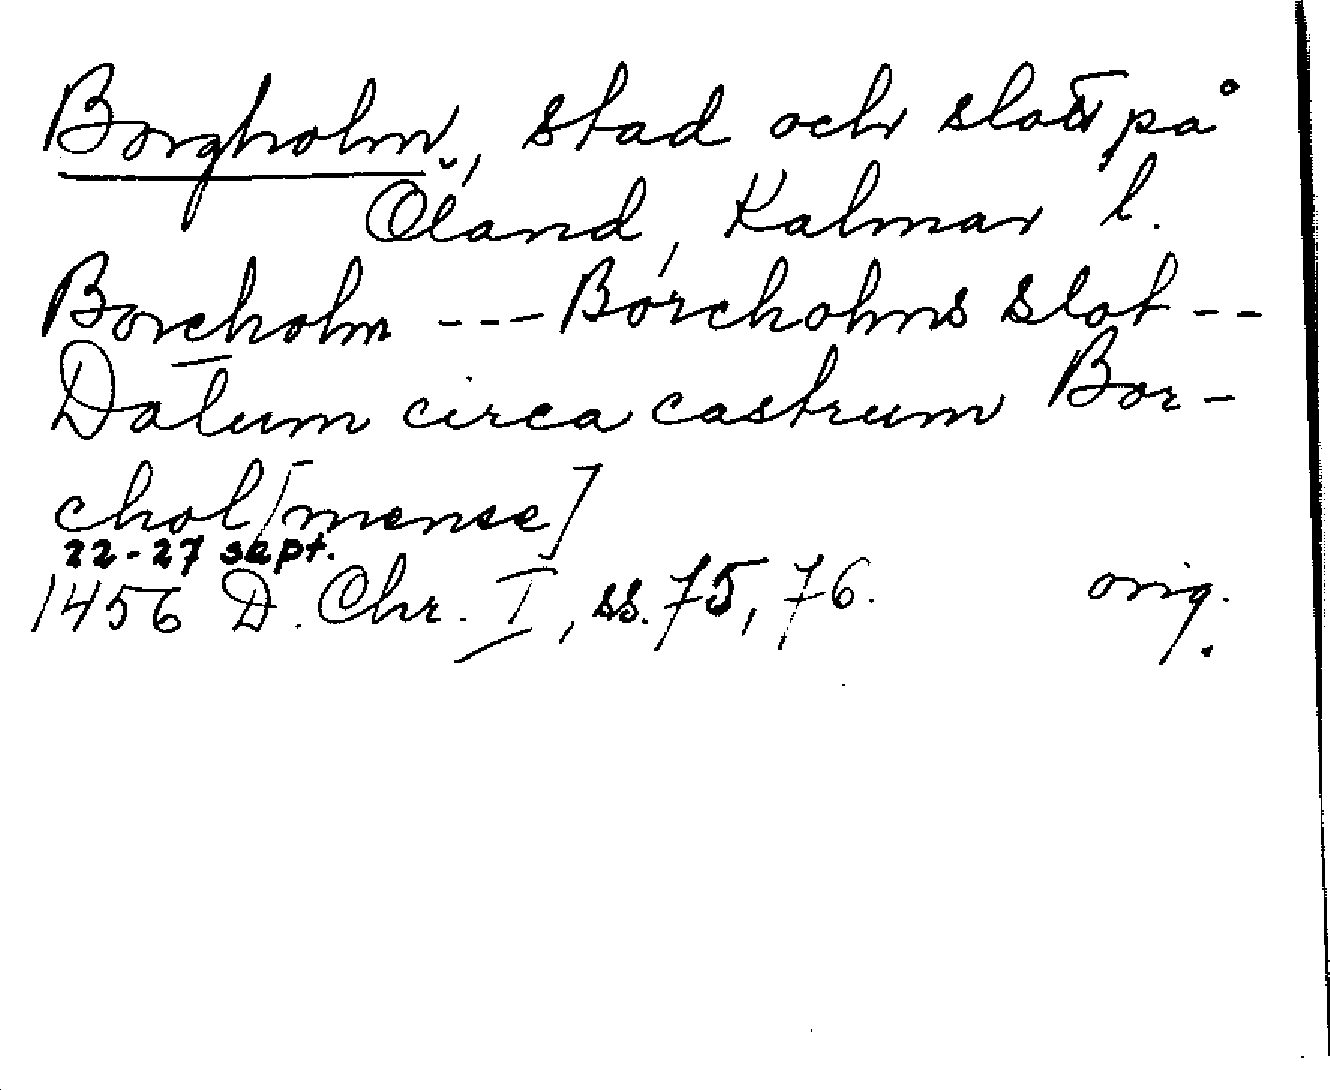 Borgholm, stad och slott på
Öland, Kalmar l.
Borcholm --- Borcholms slot --
Datum circa castrum Bor-
chol[mense]
22-27 sept.
1456 D. Chr. I, ss. 75, 76. orig.